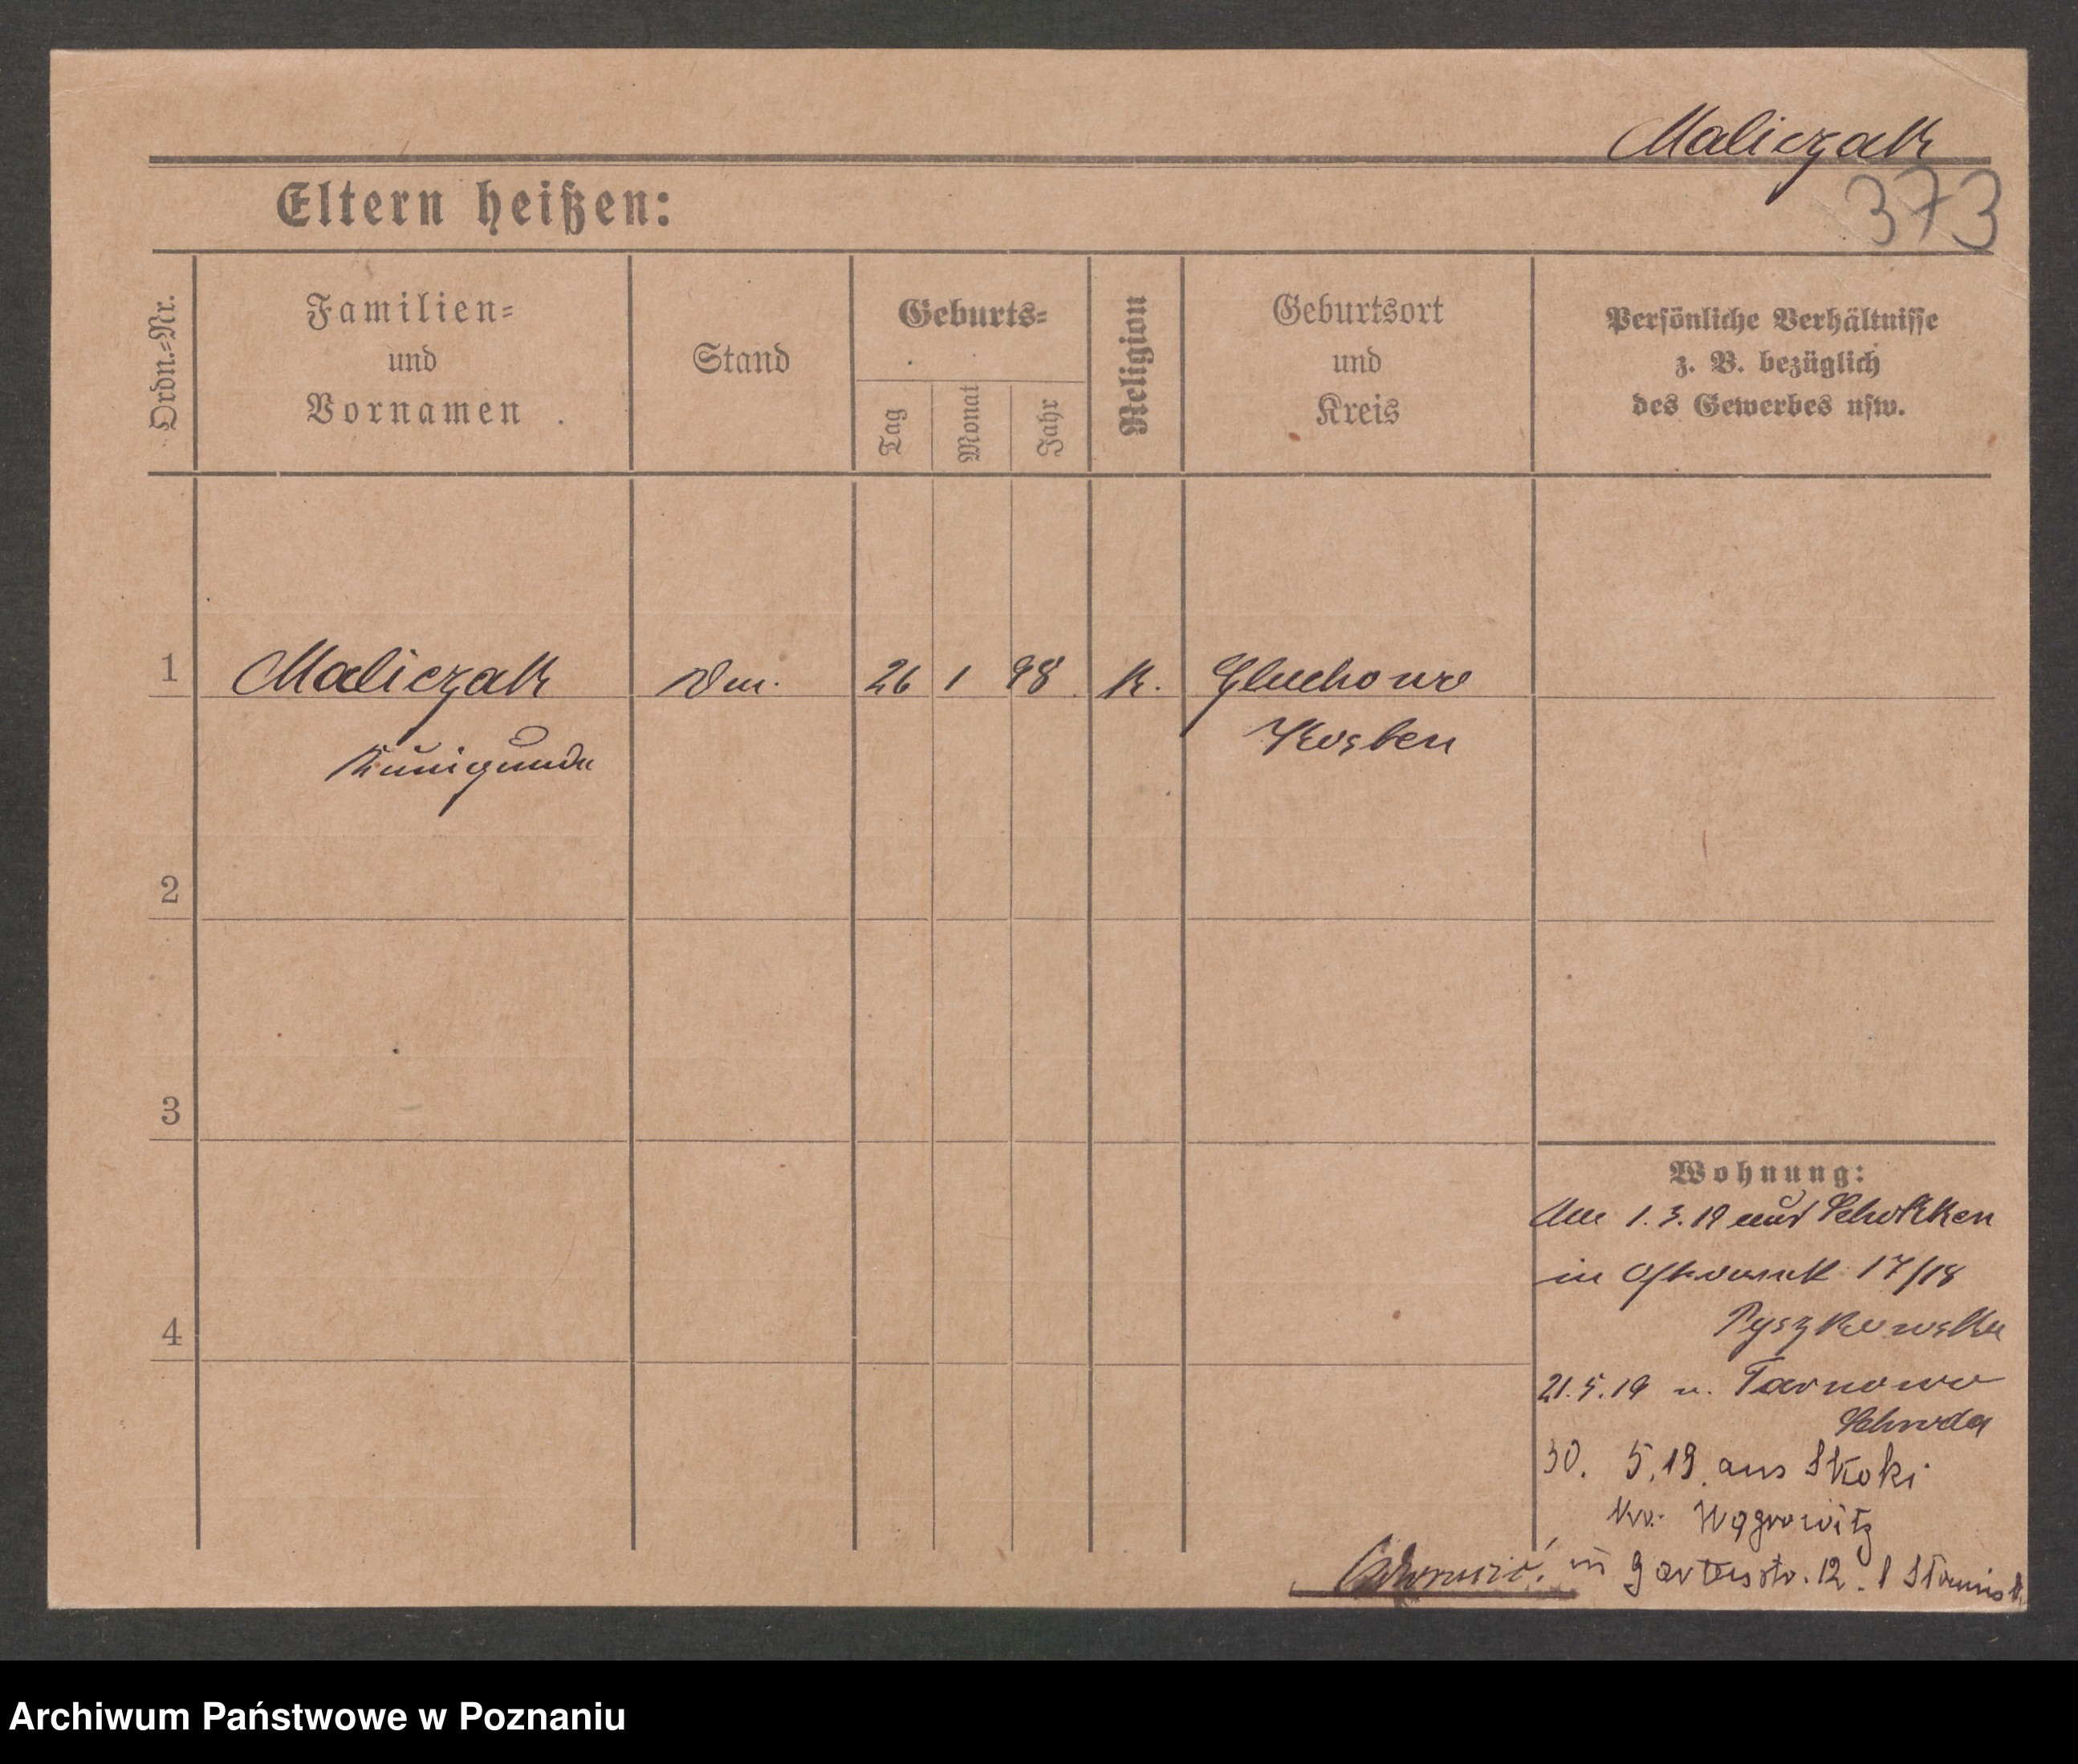 Maliczak
373
Eltern heißen:
Ordn.-Nr.
Familien-
und
Vornamen
Stand
Geburts-
Tag
Monat
Jahr
Religion
Geburtsort
und
Kreis
Persönliche Verhältnisse
z. B. bezüglich
des Gewerbes usw.
1 Maliczak 26 1 98 K. Gluchowo
Kunigunde Kosten
2
3
4
Wohnung:
1.3.19 aus Schokken
in 17/18
Pyszkowska
21.5.19 n. Tarnowo
Schroda
30. 5.19. aus Skoki
Kr. Wągrowitz
in Gartenstr. 12
Archiwum Państwowe w Poznaniu